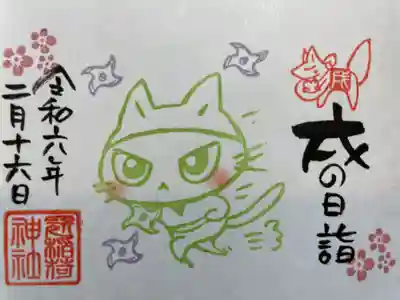 戌
戌の日詣
令和六年
二月十六日
神社